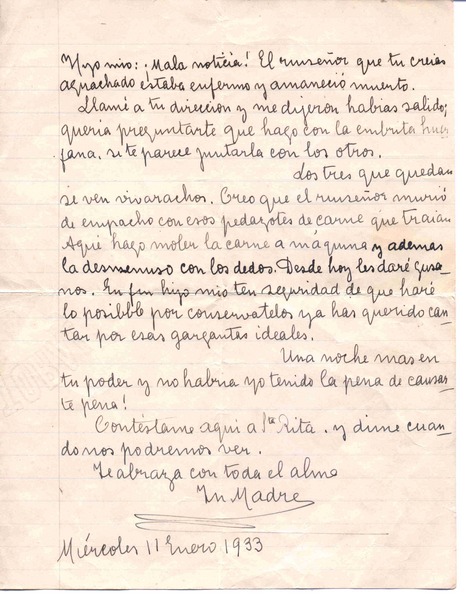 Hijo mio: ¡Mala noticia! El ruiseñor que tu creias
agachado estaba enfermo y amaneció muerto.
Llamé a tu direccion y me dijeron habias salido;
queria preguntarte que hago con la hembrita huer
fana, si te parece juntarla con los otros.
Los tres que quedan
se ven vivarachos. Creo que el ruiseñor murió
de empacho con esos pedazotes de carne que traian
Aqui hago moler la carne a máquina y ademas
la desmenuso con los dedos. Desde hoy les daré gusa-
nos. En fin hijo mio ten seguridad de que haré
lo posibble por conservatelos ya has querido can-
tar por esas gargantas ideales.
Una noche mas en
tu poder y no habria yo tenido la pena de causar
te pena!
Contéstame aqui a Sta Rita. y dime cuan-
do nos podremos ver.
Te abraza con toda el alma
Tu Madre
Miércoles 11 Enero 1933